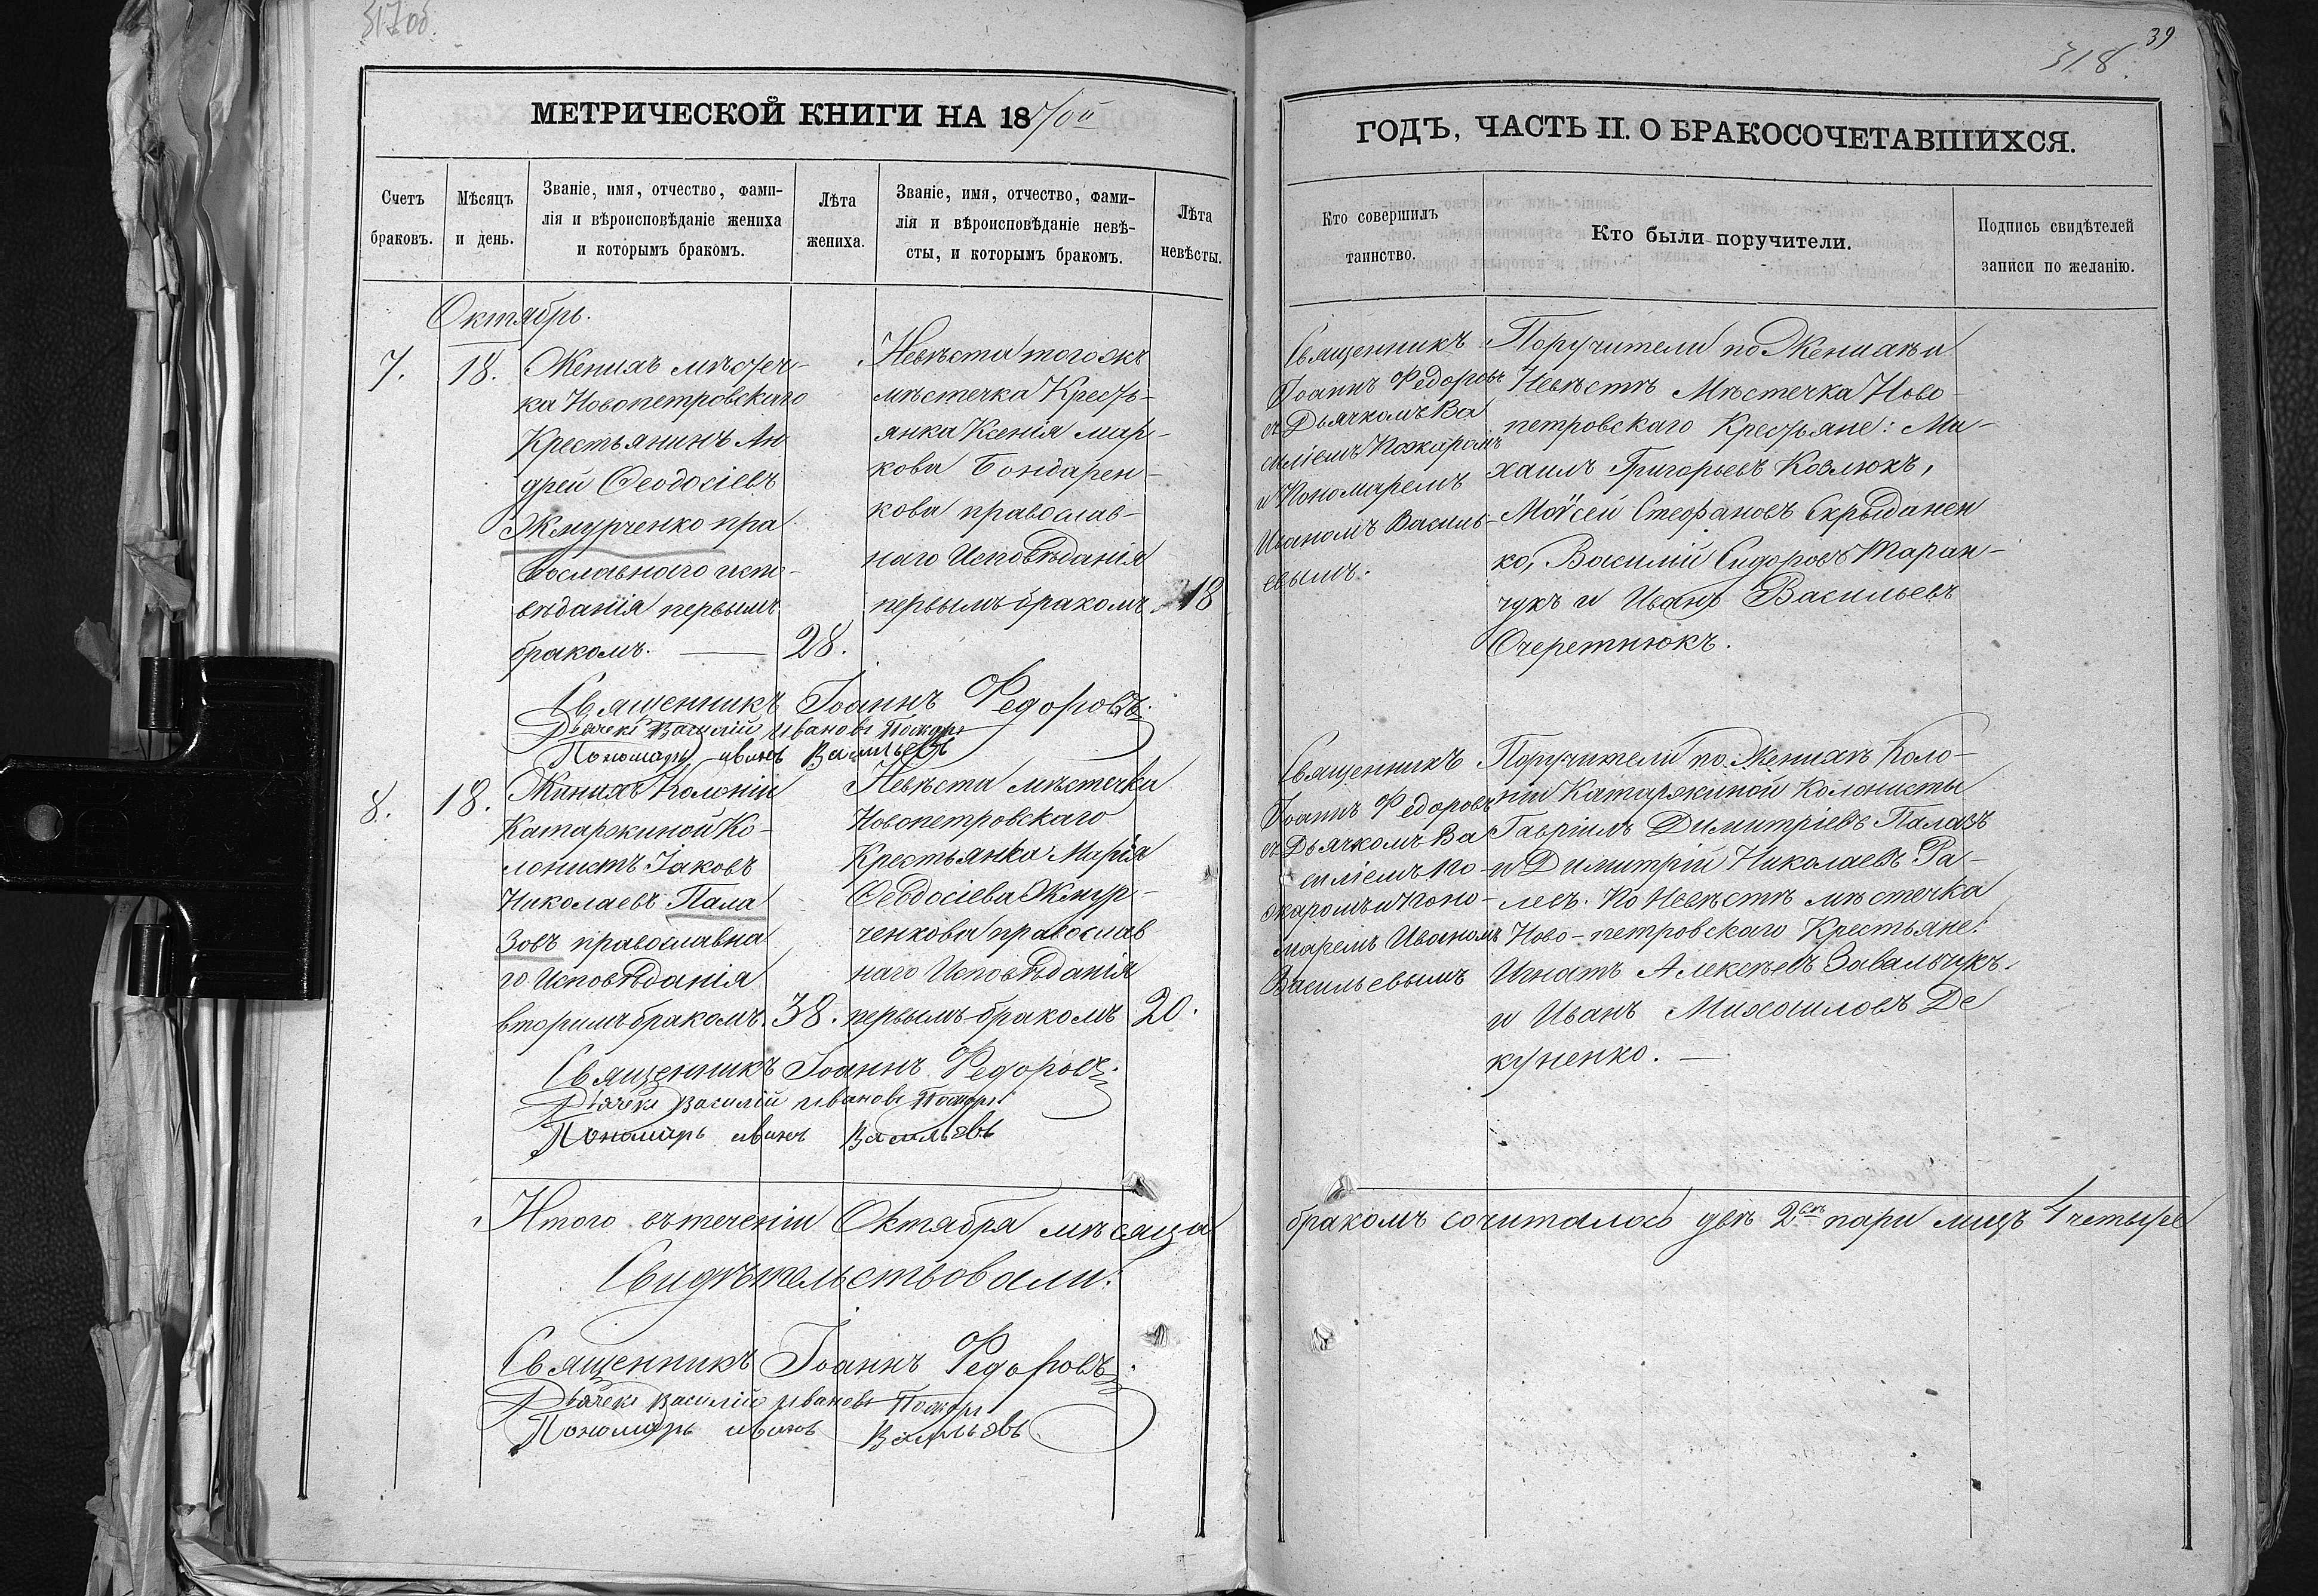 317об.
МЕТРИЧЕСКОЙ КНИГИ НА 1870й
Счетъ браковъ.
Мѣсяцъ и день.
Званіе, имя, отчество, фами-
лія и вѣроисповѣданіе жениха
и которымъ бракомъ.
Лѣта жениха.
Званіе, имя, отчество, фами-
лія и вѣроисповѣданіе невѣ-
сты, и которымъ бракомъ.
Лѣта невѣсты.
Октябрь.
7.
18.
Женихъ мѣстеч-
ка Новопетровскаго
Крестьянинъ Ан
дрей Ѳеодосіевъ
Жмурченко пра
вославнаго испо-
вѣданія первымъ
бракомъ. —
28.
Невѣста того же
мѣстечка Кресть-
янка Ксенія Мар-
кова Бондарен-
кова православ-
наго Исповѣданія
первымъ бракомъ.
18
Священникъ Іоаннъ Федоровъ.
Дьячекъ Василій Ивановъ Пожаръ
Пономарь Иванъ Васильевъ
8.
18.
Женихъ Колоніи
Катаржиной Ко-
лонистъ Іаковъ
Николаевъ Пала
зовъ православна
го Исповѣданія
вторимъ бракомъ.
38.
Невѣста мѣстечка
Новопетровскаго
Крестьянка Марія
Ѳеодосіева Жмур-
ченкова православ
наго Исповѣданія
первымъ бракомъ
20.
Священникъ Іоаннъ Федоровъ.
Дьячекъ Василій Ивановъ Пожаръ
Пономарь Иванъ Васильевъ
Итого въ теченіи Октября мѣсяца
Свидѣтельствовали:
Священникъ Іоаннъ Федоровъ.
Дьячекъ Василій Ивановъ Пожаръ
Пономарь Иванъ Васильевъ
39
318.
ГОДЪ, ЧАСТЬ II. О БРАКОСОЧЕТАВШИХСЯ.
Кто совершилъ
таинство.
Кто были поручители.
Подпись свидѣтелей
записи по желанію.
Священникъ
Іоаннъ Федоровъ
съ Дьячкомъ Ва
силіемъ Пожаромъ
и Пономаремъ
Иваномъ Василь-
евымъ.
Поручители по Женихѣ и
Невѣстѣ Мѣстечка Ново-
петровскаго Крестьяне: Ми-
хаилъ Григорьевъ Козлюкъ,
Моѵсей Стефановъ Скрыданен
ко, Василій Сидоровъ Таран-
чукъ и Иванъ Васильевъ
Очеретнюкъ.
Священникъ
Іоаннъ Федоровъ
съ Дьячкомъ Ва
силіемъ По-
жаромъ и Поно-
маремъ Иваномъ
Васильевымъ
Поручители по Женихѣ Коло-
ніи Катаржиной Колонисты
Гавріилъ Димитріевъ Палазъ
и Димитрій Николаевъ Ра-
левъ. По Невѣстѣ мѣстечка
Ново-петровскаго Крестьяне:
Игнатъ Алексѣевъ Завальчукъ
и Иванъ Михаиловъ Де
куненко. —
бракомъ сочиталось двѣ 2ѣ пари лицъ 4 четыре